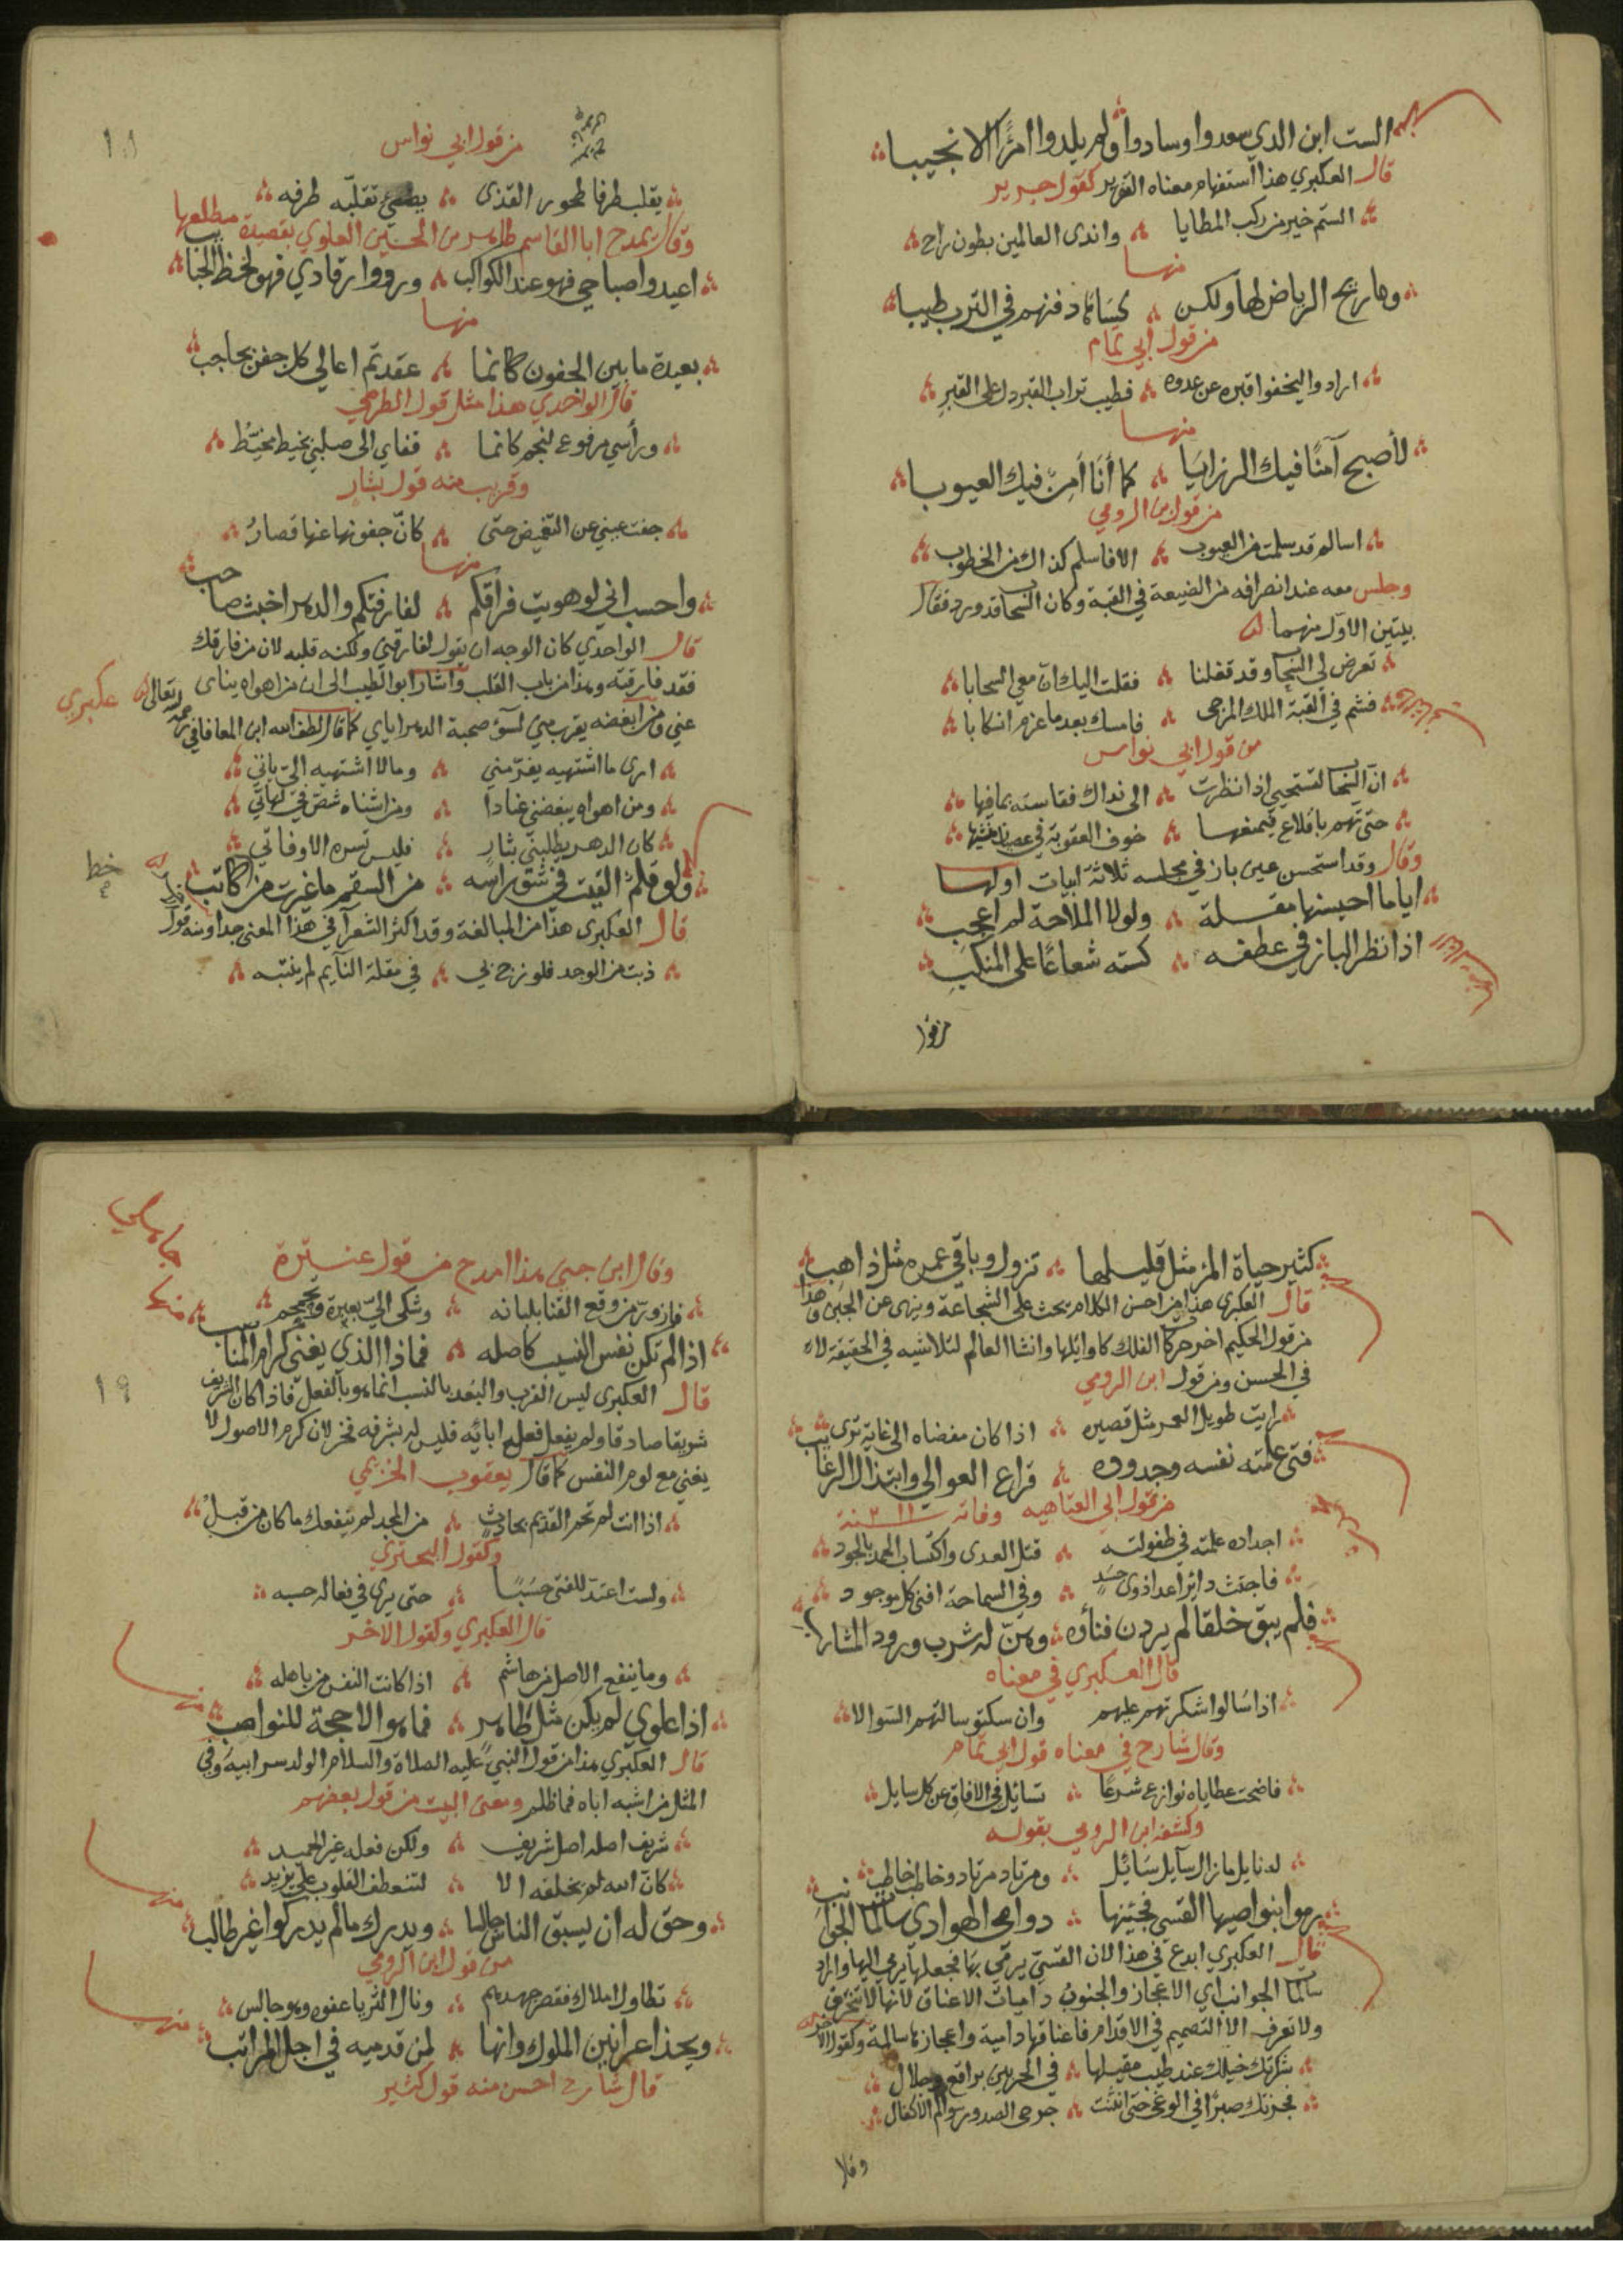 الست ابن الذي سعدوا وسادوا ولم يلدوا امرًا الا نجيبا
قال العكبري هذا استفهام معناه التقرير كقول جرير
الستم خير من ركب المطايا واندى العالمين بطون راح
منها
وما ريح الرياض لها ولكن كساها دفنهم في الترب طيبا
من قول ابي تمام
ارادوا ليخفوا قبره عن عدوه فطيب تراب القبر دل على القبر
منها
لأصبح آمنًا فيك الرزايا كما أنا آمن فيك العيوبا
من قول ابن الرومي
اسالم قد سلمت من العيوب الا فاسلم كذاك من الخطوب
وجلس معه عند انصرافه من الضيعة في القبة وكان السحاب قد ورد فقال
بيتين الاول منهما
تعرض لي السحاب وقد قفلنا فقلت اليك ان معي السحابا
فشم في القبة الملك المرجى فامسك بعد ما عزم انسكابا
من قول ابي نواس
ان السحاب لتستحيي اذا نظرت الى نداك فقاسته بما فيها
حتى تهم باقلاع فيمنعها خوف العقوبة في عصيان منشيها
وقال وقد استحسن عين باز في مجلسه ثلاثة ابيات اولها
ايا ما احيسنها مقلة ولولا الملاحة لم اعجب
اذا نظر الباز في عطفه كسته شعاعًا على المنكب
من قول
من قول ابي نواس
يقلب طرفا طحور القذى يضيء تقلبه طرفه
وقال يمدح ابا القاسم طاهر بن الحسين العلوي بقصيدة مطلعها
اعيدوا صباحي فهو عند الكواكب وردوا رقادي فهو لحظ الحبائب
منها
بعيدة ما بين الجفون كانما عقدتم اعالي كل جفن بحاجب
قال الواحدي هذا مثل قول الطرمي
ورأسي مرفوع لنجم كانما قفاي الى صلبي بخيط مخيط
وقريب منه قول بشار
جفت عيني عن التغميض حتى كان جفونها عنها قصار
منها
واحسب اني لو هويت فراقكم لفارقتكم والدهر اخبث صاحب
قال الواحدي كان الوجه ان يقول لفارقني ولكنه قلبه لان من فارقك
فقد فارقته وهذا من باب القلب واشار ابو الطيب الى ان من اهواه ينأى
عني ومن ابغضه يقرب مني لسوء صحبة الدهر اياي كما قال لطف الله ابن المعافا في
عكبري
ارى ما اشتهيه يفر مني وما لا اشتهيه الي ياتي
ومن اهواه يبغضني عنادا ومن اشناه شص في لهاتي
كان الدهر يطلبني بثار فليس تسره الا وفاتي
ولو قلم القيت في شق راسه من السقم ما غيرت من كاتب
خط
قال العكبري هذا من المبالغة وقد اكثر الشعراء في هذا المعنى جدا ومنه قول
ذبت من الوجد فلو زج بي في مقلة النايم لم ينتبه
كثير حياة المرء مثل قليلها تزول وباقي عمره مثل ذاهب
قال العكبري هذا من احسن الكلام يحث على الشجاعة وينهى عن الجبن وهذا
من قول الحكيم اخر حركات الفلك كاوايلها وانشا العالم لتلاشيه في الحقيقة لا
في الحسن ومن قول ابن الرومي
رايت طويل العمر مثل قصيره اذا كان مفضاه الى غاية ترى
فتى علمته نفسه وجدوده قراع العوالي وابتذال الرغائب
من قول ابي العتاهيه وفاته ٢١١ سنة
اجداده علمته في طفولته قتل العدى واكتساب الحمد بالجود
فاجتث دابر اعدا ذوي حسد وفي السماحة افنى كل موجود
فلم يبق خلقا لم يردن فناءه وهن له شرب ورود المشارب
قال العكبري في معناه
اذا سالوا شكرتهم عليهم وان سكتو سالتهم السوالا
وقال شارح في معناه قول ابي تمام
فاضحت عطاياه نوازع شرعا تسائل في الافاق عن كل سايل
وكشفه ابن الرومي بقوله
له نايل ما زال سايل سائل ومرتاد مرتاد وخاطب خاطب
رموا بنواصيها القسي فجئنها دوامي الهوادي سالمات الجوانب
قال العكبري ابدع في هذا لان القسي يرمى بها فجعلها يرمى اليها واراد
سالمات الجوانب اي الاعجاز والجنوب داميات الاعناق لانها لا تنحرف
ولا تعرف الا التصميم في الاقدام فاعناقها دامية واعجازها سالمة وكقول الاخر
شكرتك خيلك عند طيب مقيلها في الحربين براقع وجلال
فجزتك صبرًا في الوغى حتى انثنت جرحى الصدور سوالم الاكفال
وقال
وقال ابن جني هذا امدح من قول عنترة
فازور من وقع القنا بلبانه وشكى الي بعبرة وتحمحم
منها
اذا لم تكن نفس النسيب كاصله فماذا الذي يغني كرام المناسب
١٩
قال العكبري ليس القرب والبعد بالنسب انما هو بالفعل فاذا كان الشريف
شريفا صادقا ولم يفعل فعل ابائه فليس له بشرفه فخر لان كرم الاصول لا
يغني مع لوم النفس كما قال يعقوب الخريمي
اذا انت لم تحم القديم بحادث من المجد لم ينفعك ما كان من قبل
وكقول البحتري
ولست اعتد للفتى حسبًا حتى يرى في فعاله حسبه
قال العكبري وكقول الاخر
وما ينفع الاصل من هاشم اذا كانت النفس من باهله
منها
اذا علوي لم يكن مثل طاهر فما هو الا حجة للنواصب
قال العكبري هذا من قول النبي عليه الصلاة والسلام الولد سر ابيه وفي
المثل من اشبه اباه فما ظلم ومعنى البيت من قول بعضهم
شريف اصله اصل شريف ولكن فعله غير الحميد
كان الله لم يخلقه الا لتنعطف القلوب على يزيد
منها
وحق له ان يسبق الناس جالسا ويدرك ما لم يدركوا غير طالب
من قول ابن الرومي
تطاول املاك فقصر جهدهم ونال الثريا عفوه وهو جالس
منها
ويحذا عرانين الملوك وانها لمن قدميه في اجل المراتب
قال شارح احسن منه قول كثير